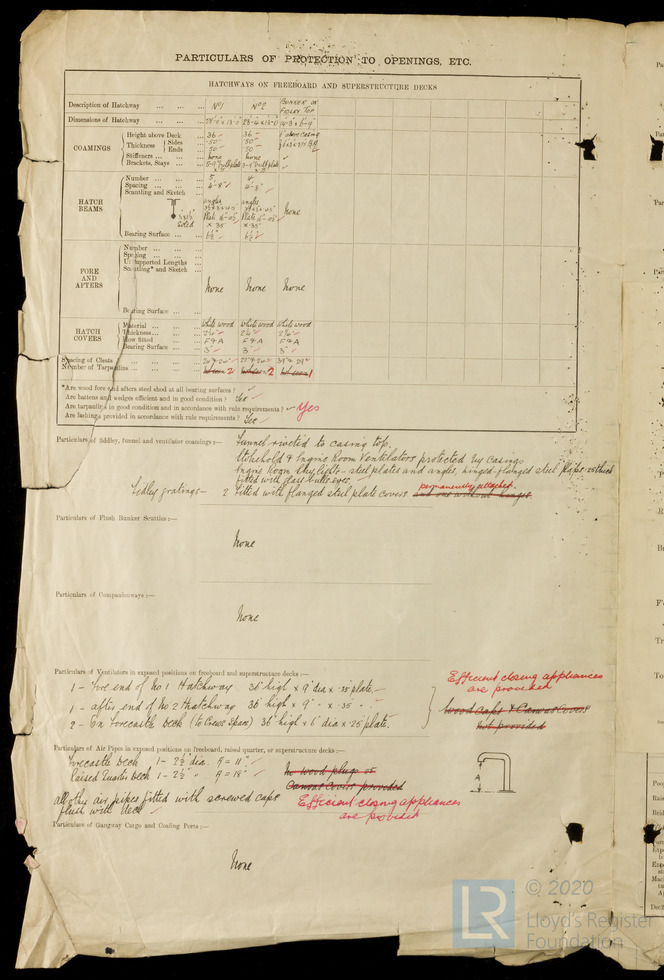 PARTICULARS OF PROTECTION TO OPENINGS, ETC.
HATCHWAYS ON FREEBOARD AND SUPERSTRUCTURE DECKS
Description of Hatchway ... ... ... No 1 No 2 BUNKER ON FIDLEY TOP
Dimensions of Hatchway ... 23-4 x 13-0
COAMINGS
Height above Deck ... 36 36 above casing
Thickness Sides .50 .50
Ends .50 .50
Stiffeners ... none none
Brackets, Stays ... ...
HATCH BEAMS
Number ... ... ... 5 4
Spacing ... ... ... 4'-8" 4'-8"
Scantling and Sketch ... angles angles None
Plate Plate
x .35 x .35
Bearing Surface ... ...
FORE AND AFTERS
Number ... ... ...
Spacing ... ... ...
Unsupported Lengths
Scantling* and Sketch ...
None None None
Bearing Surface ... ...
HATCH COVERS
Material ... ... ... White wood White wood White wood
Thickness ... ... 2½" 2½" 2½"
How fitted ... ... F & A F & A F & A
Bearing Surface ... 3" 3" 3"
Spacing of Cleats ... ... ...
Number of Tarpaulins ... ... ... 2 2 1
*Are wood fore and afters steel shod at all bearing surfaces?
Are battens and wedges efficient and in good condition? Yes
Are tarpaulins in good condition and in accordance with rule requirements? Yes
Are lashings provided in accordance with rule requirements? Yes
Particulars of fiddley, funnel and ventilator coamings:— Funnel riveted to casing top.
Stokehold & Engine Room Ventilators protected by casings
Engine Room Skylights - steel plates and angles, hinged flanged steel flaps
fitted with glass bulls eyes.
permanently attached.
Fidley gratings - 2 Fitted with flanged steel plate covers and one without hinges
Particulars of Flush Bunker Scuttles:—
None
Particulars of Companionways:—
None
Particulars of Ventilators in exposed positions on freeboard and superstructure decks:—
Efficient closing appliances
are provided
1 - Fore end of No 1 Hatchway 36" high x 9" dia x .35 plate.
1 - after end of No 2 Hatchway 36" high x 9" - x .35 -
Wood Caps & Canvas Covers
not provided
2 - On Forecastle deck (to Crews Space) 36" high x 6" dia x .25 plate.
Particulars of Air Pipes in exposed positions on freeboard, raised quarter, or superstructure decks:—
Forecastle deck 1 - 2½" dia. A = 11"
Raised Quarter deck 1 - 2½" " A = 18"
No wood plugs or
Canvas Covers provided
A
all other air pipes fitted with screwed caps
flush with deck
Efficient closing appliances
are provided
Particulars of Gangway Cargo and Coaling Ports:—
None
LR
© 2020
Lloyd's Register
Foundation